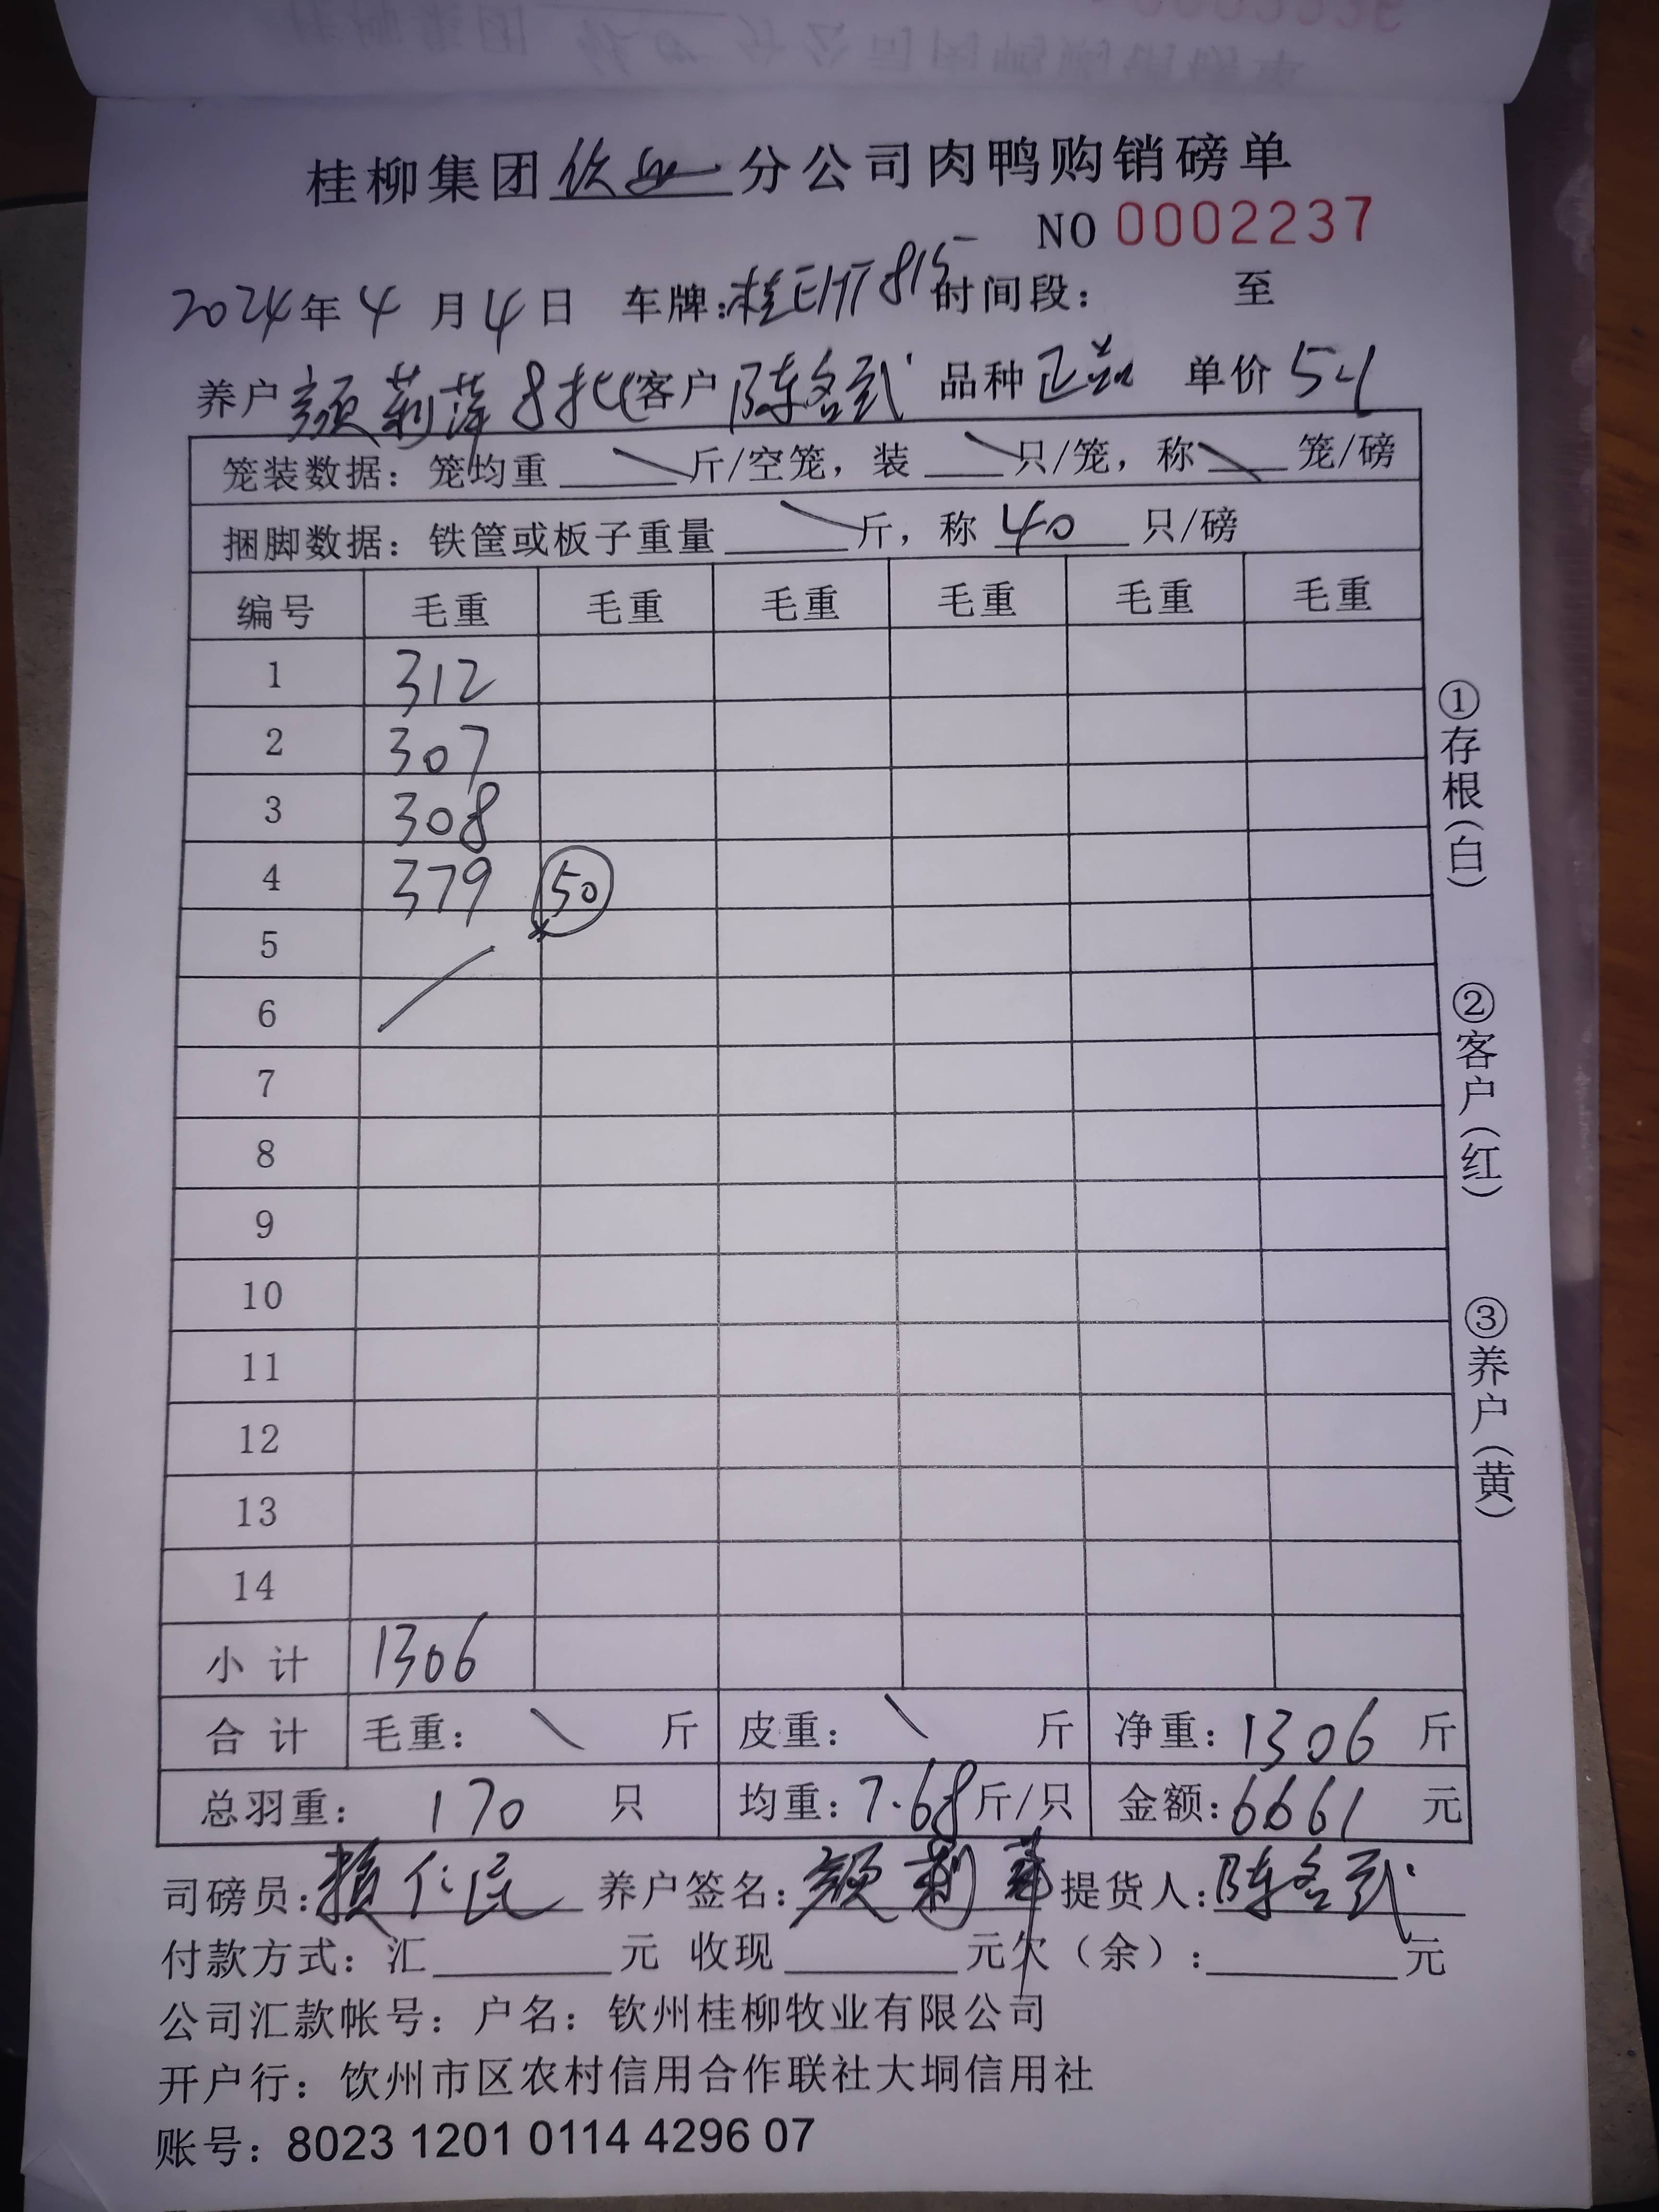 桂柳集团钦州分公司肉鸭购销磅单
NO 0002237
2024年4月4日 车牌: 时间段: 至
养户 颜莉萍 8批 客户 陈名武 品种 单价 5.1
笼装数据: 笼均重 \ 斤/空笼, 装 \ 只/笼, 称 \ 笼/磅
捆脚数据: 铁筐或板子重量 \ 斤, 称 40 只/磅
编号 毛重 毛重 毛重 毛重 毛重 毛重
1 312
2 307
3 308
4 379 50
5
6
7
8
9
10
11
12
13
14
小计 1306
合计 毛重: \ 斤 皮重: \ 斤 净重: 1306 斤
总羽重: 170 只 均重: 7.68 斤/只 金额: 6661 元
司磅员: 仁民 养户签名: 颜莉萍 提货人: 陈名武
付款方式: 汇______元 收现______元欠(余):______元
公司汇款帐号: 户名: 钦州桂柳牧业有限公司
开户行: 钦州市区农村信用合作联社大垌信用社
账号: 8023 1201 0114 4296 07
①存根(白)
②客户(红)
③养户(黄)